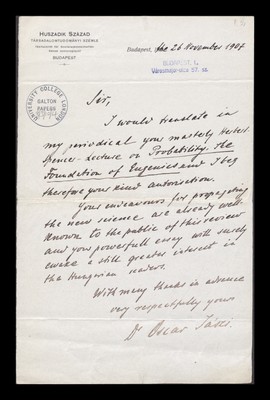 HUSZADIK SZÁZAD
TÁRSADALOMTUDOMÁNYI SZEMLE
BUDAPEST
Budapest, the 26 November 1907
BUDAPEST, I.
UNIVERSITY COLLEGE LONDON
GALTON
PAPERS
Sir,
I would translate in
my periodical your masterly Herbert
Spencer-lecture on Probability, the
Foundation of Eugenics and I beg
therefore your kind autorisation.
Your endeavours for propagating
the new science are already well-
known to the public of this review
and your powerfull essay will surely
evoke a still greater interest in
the Hungarian readers.
With many thanks in advance
very respectfully yours
Dr Oscar Jászi.